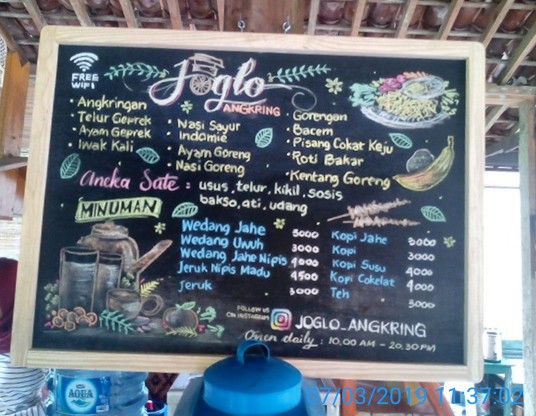 FREE
WIFI
Joglo
ANGKRING
• Angkringan
• Telur Geprek
• Ayam Geprek
• Iwak Kali
• Nasi Sayur
• Indomie
• Ayam Goreng
• Nasi Goreng
Gorengan
• Bacem
• Pisang Cokat Keju
• Roti Bakar
• Kentang Goreng
Aneka Sate : usus, telur, kikil, sosis
bakso, ati, udang
MINUMAN
Wedang Jahe 3000
Wedang Uwuh 3000
Wedang Jahe Nipis 4000
Jeruk Nipis Madu 4500
Jeruk 3000
Kopi Jahe 3000
Kopi 3000
Kopi Susu 4000
Kopi Cokelat 4000
Teh 3000
FOLLOW US
ON INSTAGRAM
JOGLO_ANGKRING
Open daily : 10.00 AM - 20.30 PM
AQUA
07/03/2019 11:37:02